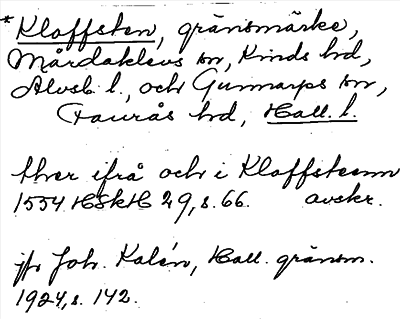 *Kloffsten, gränsmärke,
Mårdaklevs sn, Kinds hd,
Älvsb. l., och Gunnarps sn,
Faurås hd, Hall. l.
ther ifrå och i Kloffsteenn
1554 HSkH 29, s. 66. avskr.
jfr Joh. Kalén, Hall. gränsm.
1924, s. 142.